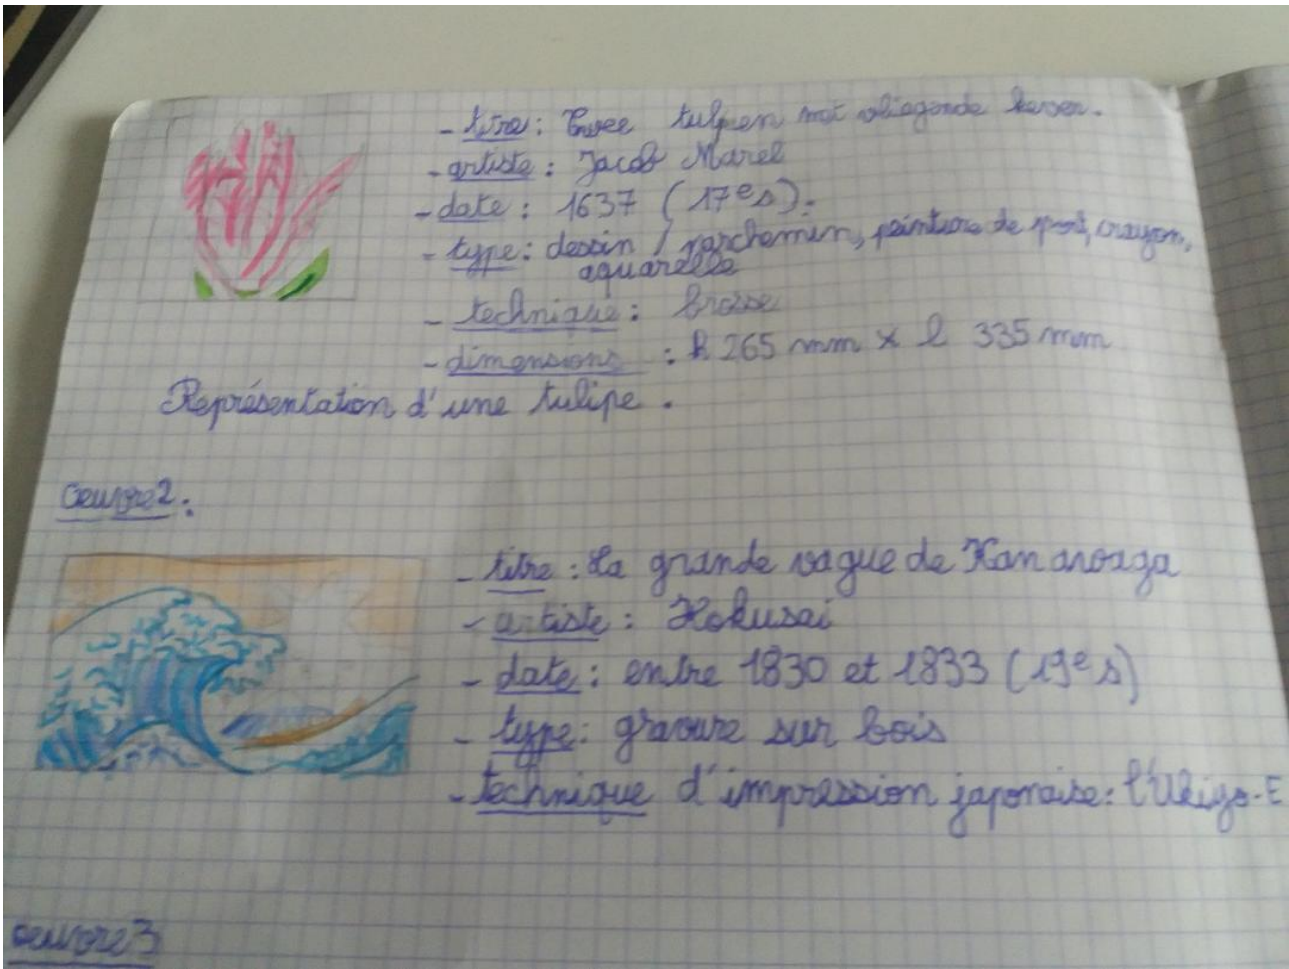 - titre : Twee tulpen met vliegende kever.
- artiste : Jacob Marel
- date : 1637 (17e s).
- type : dessin / parchemin, peinture de port, crayon,
aquarelle
- technique : brosse
- dimensions : h 265 mm x l 335 mm
Représentation d'une tulipe.
œuvre 2 :
- titre : La grande vague de Kanawaga
- artiste : Hokusai
- date : entre 1830 et 1833 (19e s)
- type : gravure sur bois
- technique d'impression japonaise : l'Ukiyo-E
œuvre 3